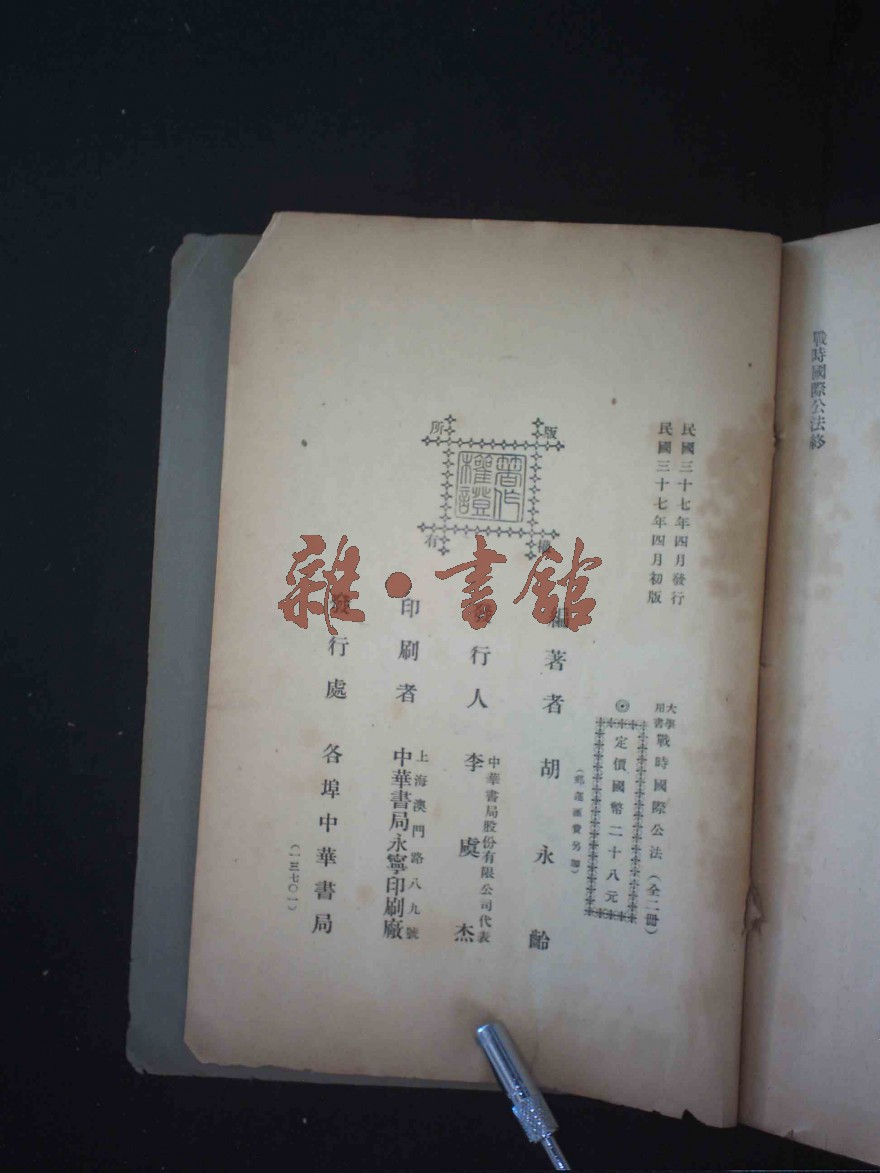 戰時國際公法終
民國三十七年四月發行
民國三十七年四月初版
大學用書 戰時國際公法（全二冊）
◎定價國幣二十八元
（郵運匯費另加）
版權所有
著作權證
編著者 胡永齡
發行人 李虞杰
中華書局股份有限公司代表
印刷者 中華書局永寧印刷廠
上海澳門路八九號
發行處 各埠中華書局
（一三七〇一）
雜·書館